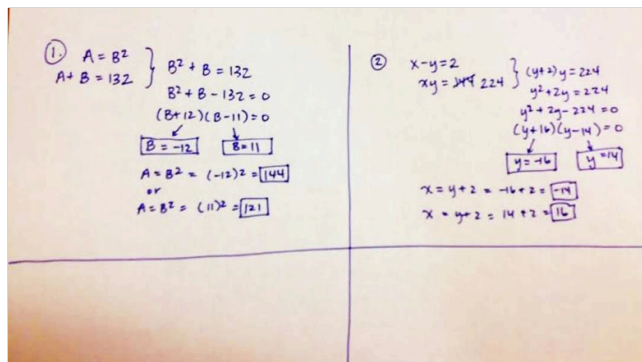 1. A = B²
A + B = 132 } B² + B = 132
B² + B - 132 = 0
(B+12)(B-11) = 0
B = -12 B = 11
A = B² = (-12)² = 144
or
A = B² = (11)² = 121
2 x - y = 2
xy = 224 } (y+2)y = 224
y² + 2y = 224
y² + 2y - 224 = 0
(y+16)(y-14) = 0
y = -16 y = 14
x = y + 2 = -16 + 2 = -14
x = y + 2 = 14 + 2 = 16